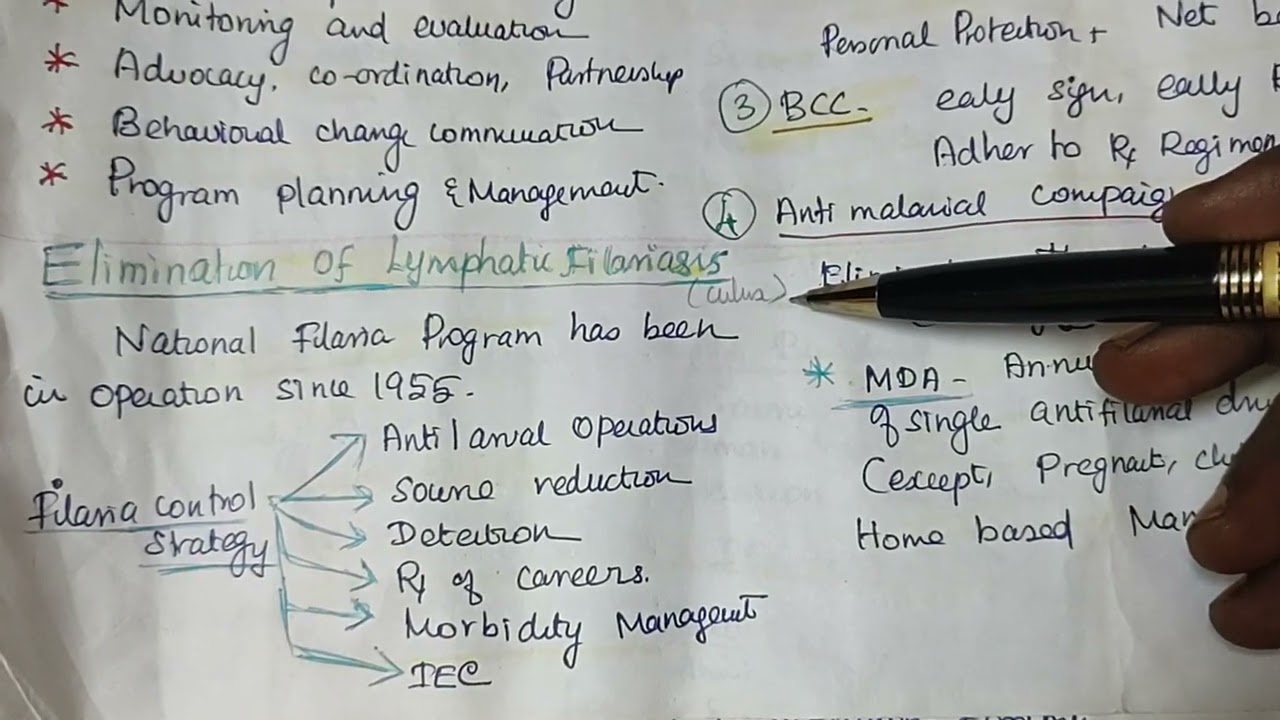 * Monitoring and evaluation
* Advocacy, co-ordination, Partnership
* Behavioural change commucation
* Program planning & Management.
Elimination of Lymphatic Filariasis
National Filaria Program has been
in operation since 1955.
Filaria control
strategy
Anti larval operations
Source reduction
Detection
Rx of careers.
Morbidity Management
IEC
Personal Protection + Net
③ BCC - ealy sign, eally
Adher to Rx Regimen
④ Anti malarial compaig
* MDA - Annu
of single antifilarial dru
(except, Pregnant,
Home based Man